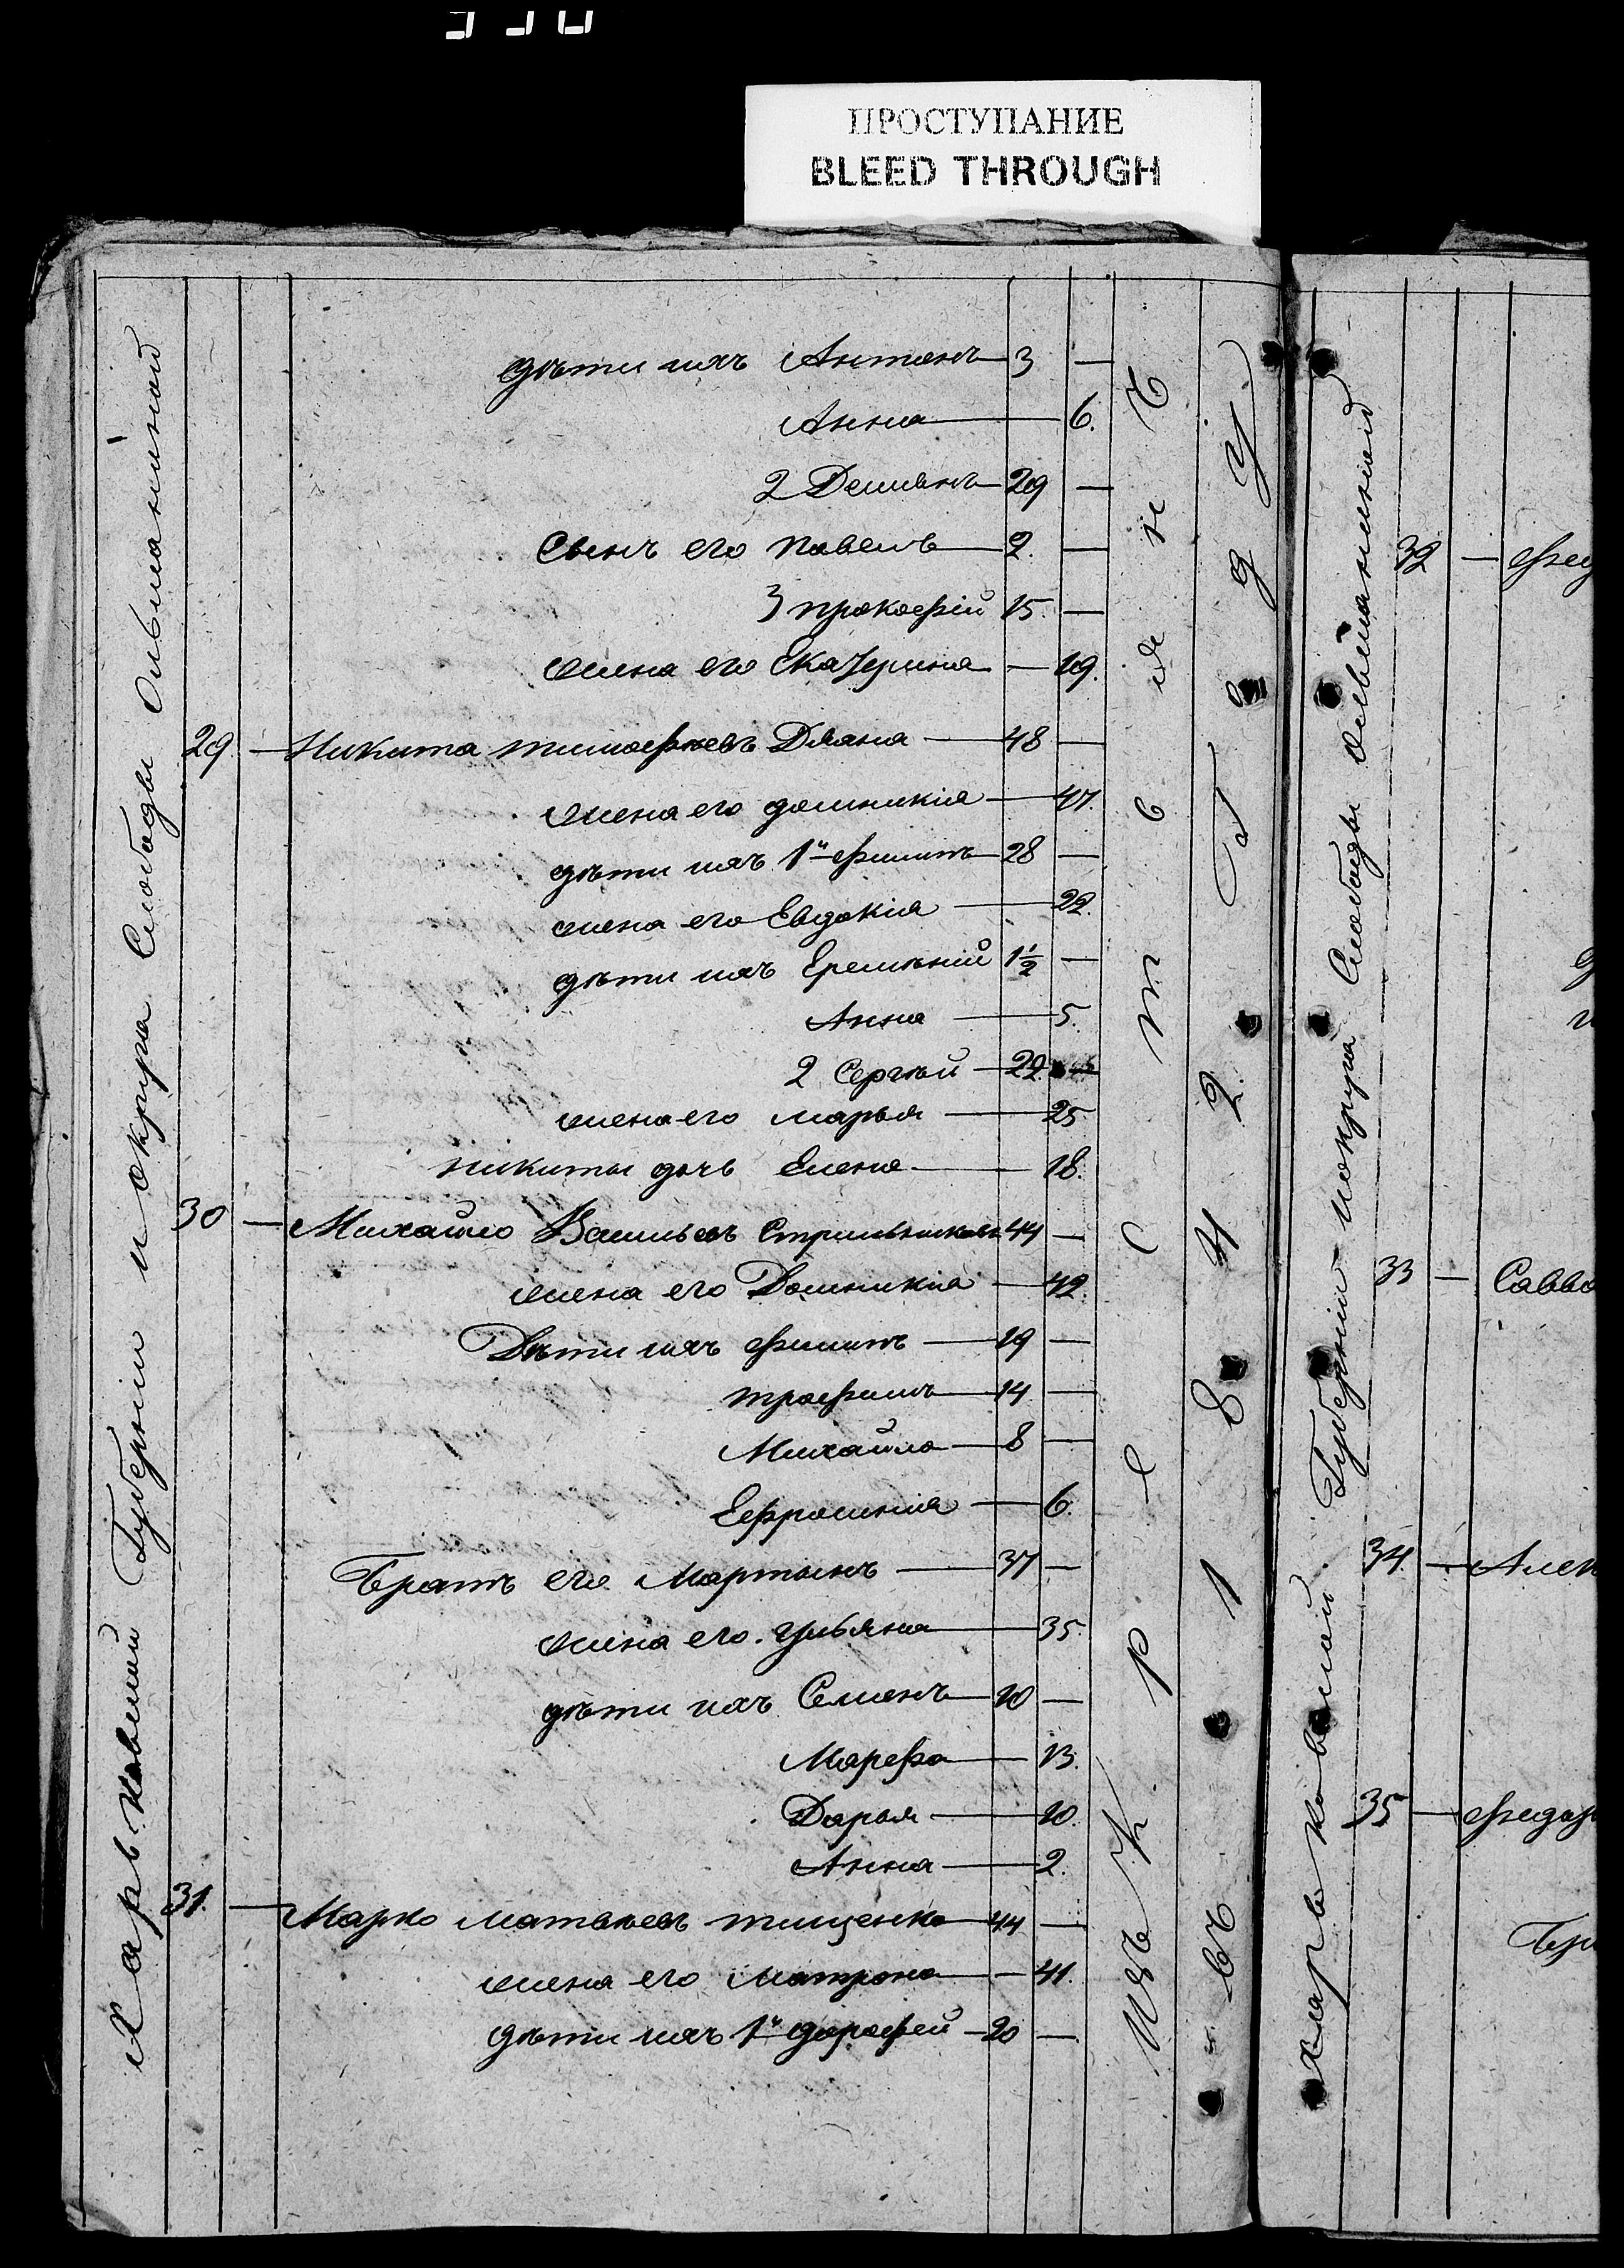 ПРОСТУПАНИЕ
BLEED THROUGH
Харьковской Губерніи и округа Слободы Ольшанской
дѣти ихъ Антонъ 3 —
Анна — 6.
2 Демьянъ 29 —
Сынъ его Павелъ 2. —
3 прокофій 15. —
жена его Екатерина — 19.
29. — Никита тимофѣевъ — 48 —
жена его домникія — 47.
дѣти ихъ 1й филипъ 28 —
жена его Евдокія — 22.
дѣти ихъ Еремѣній 1½ —
Анна — 5.
2 Сергѣй — 22. —
жена его марья — 25
никиты дочь Елена — 18.
30 — Михайло Васильевъ Стрильниковъ 44 —
жена его Домникія — 42.
Дѣти ихъ филипъ — 19 —
трофимъ — 14 —
Михайло — 8 —
Ефросинія — 6.
Братъ его Мартынъ — 37 —
жена его. ульяна — 35.
дѣти ихъ Семенъ — 10 —
Марефа — 13.
Дарья — 10.
Анна — 2.
31. — Марко матвѣевъ тищенко — 44 —
жена его матрона — 41.
дѣти ихъ 1й дорофей — 20 —
Изъ Крестьянъ
въ 1842 Году
харьковской Губерніи и округа Слободы ольшанской
32 — Фед
33 — Савва
34. — Алек
35 — Федор
Бра